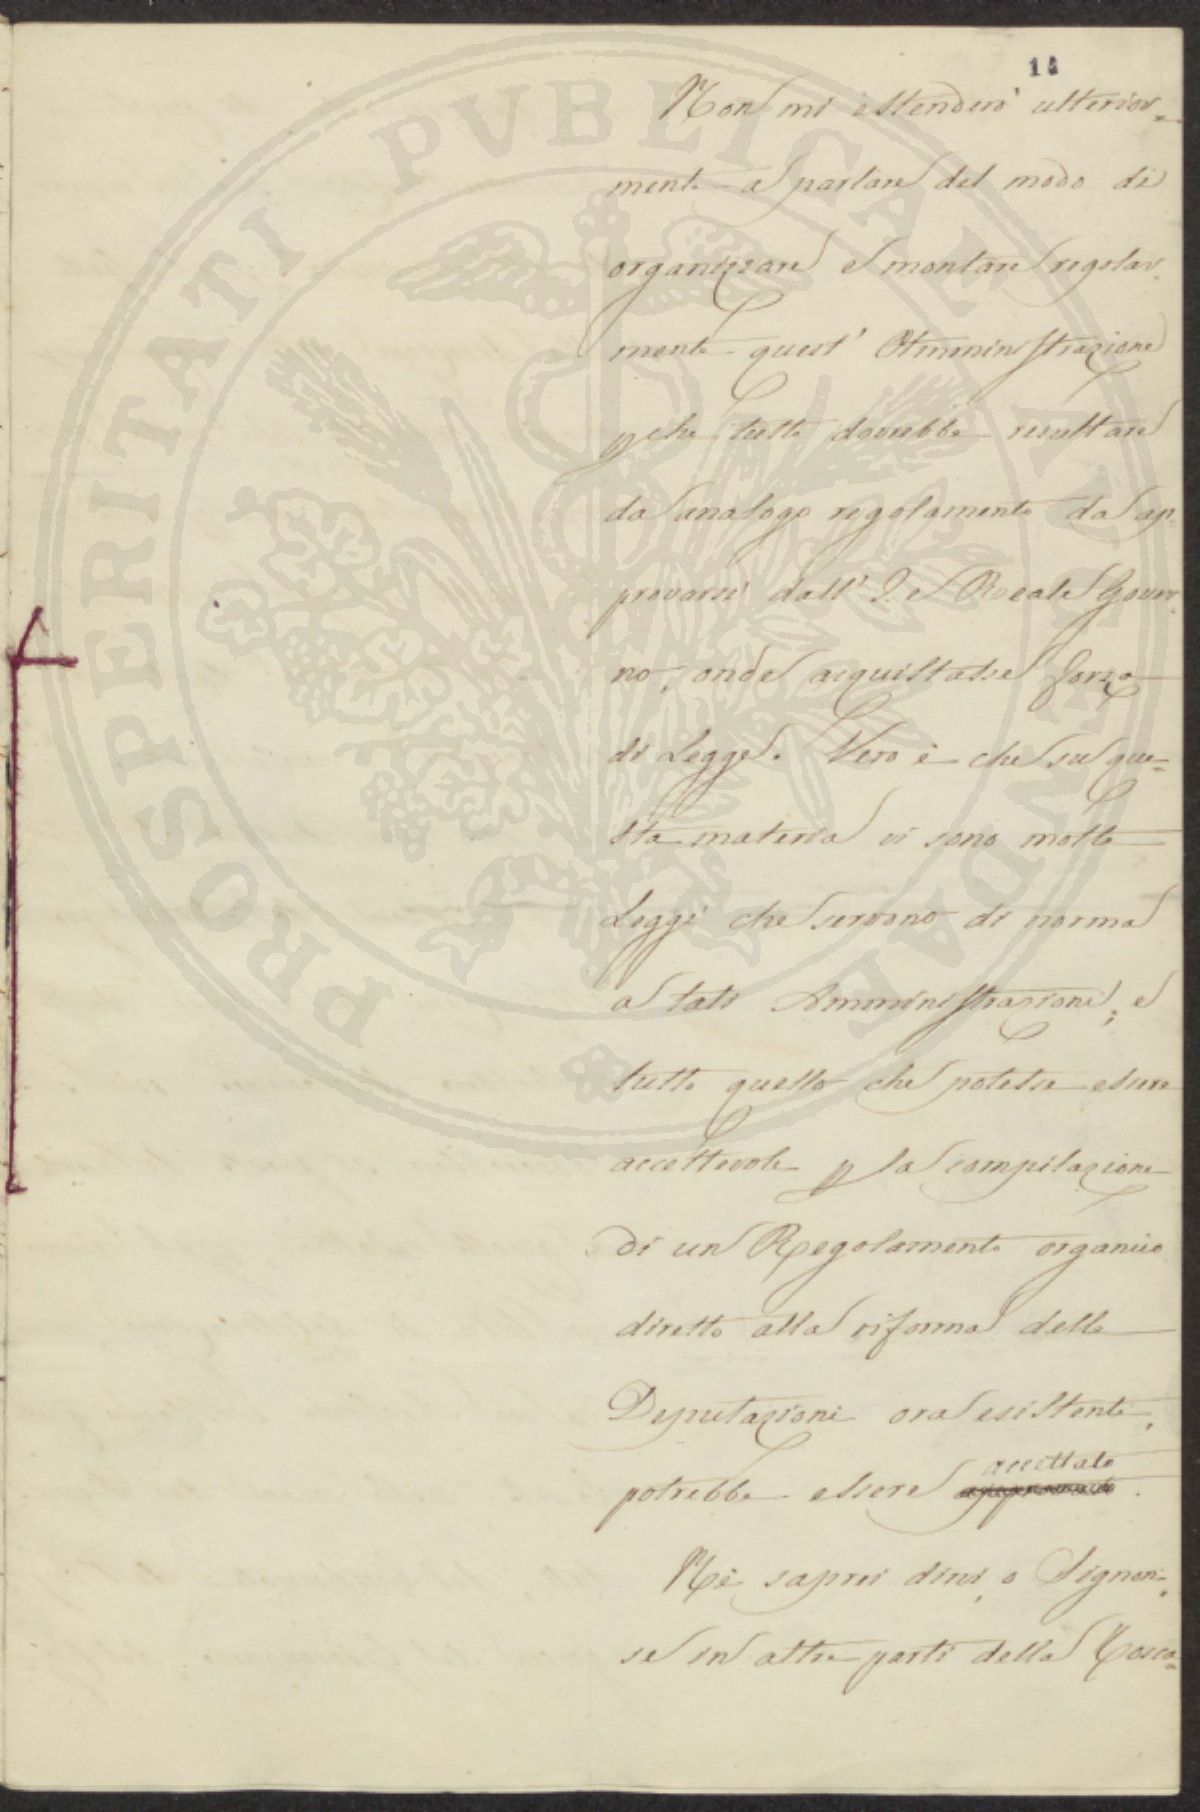 Non mi estenderò ulterior=
mente a parlare del modo di
organizzare e montare regolar.
mente quest' Amministrazione
che tutto dovrebbe resultare
da analogo regolamento da ap
provarsi dall' I e Reale Gover.
no, onde acquistasse forza
di Legge. Vero è che su que=
sta materia vi sono molte
Leggi che servono di norma
a tali Amministrazioni; e
tutto quello che potesse essere
accettevole p la compilazione
di un Regolamento organico
diretto alla riforma delle
Deputazioni ora esistenti,
accettato
potrebbe essere .
Nè saprei dirvi, o Signori,
se in altre parti della Tosca=
PROSPERITATI PVBLICAE AVGENDAE